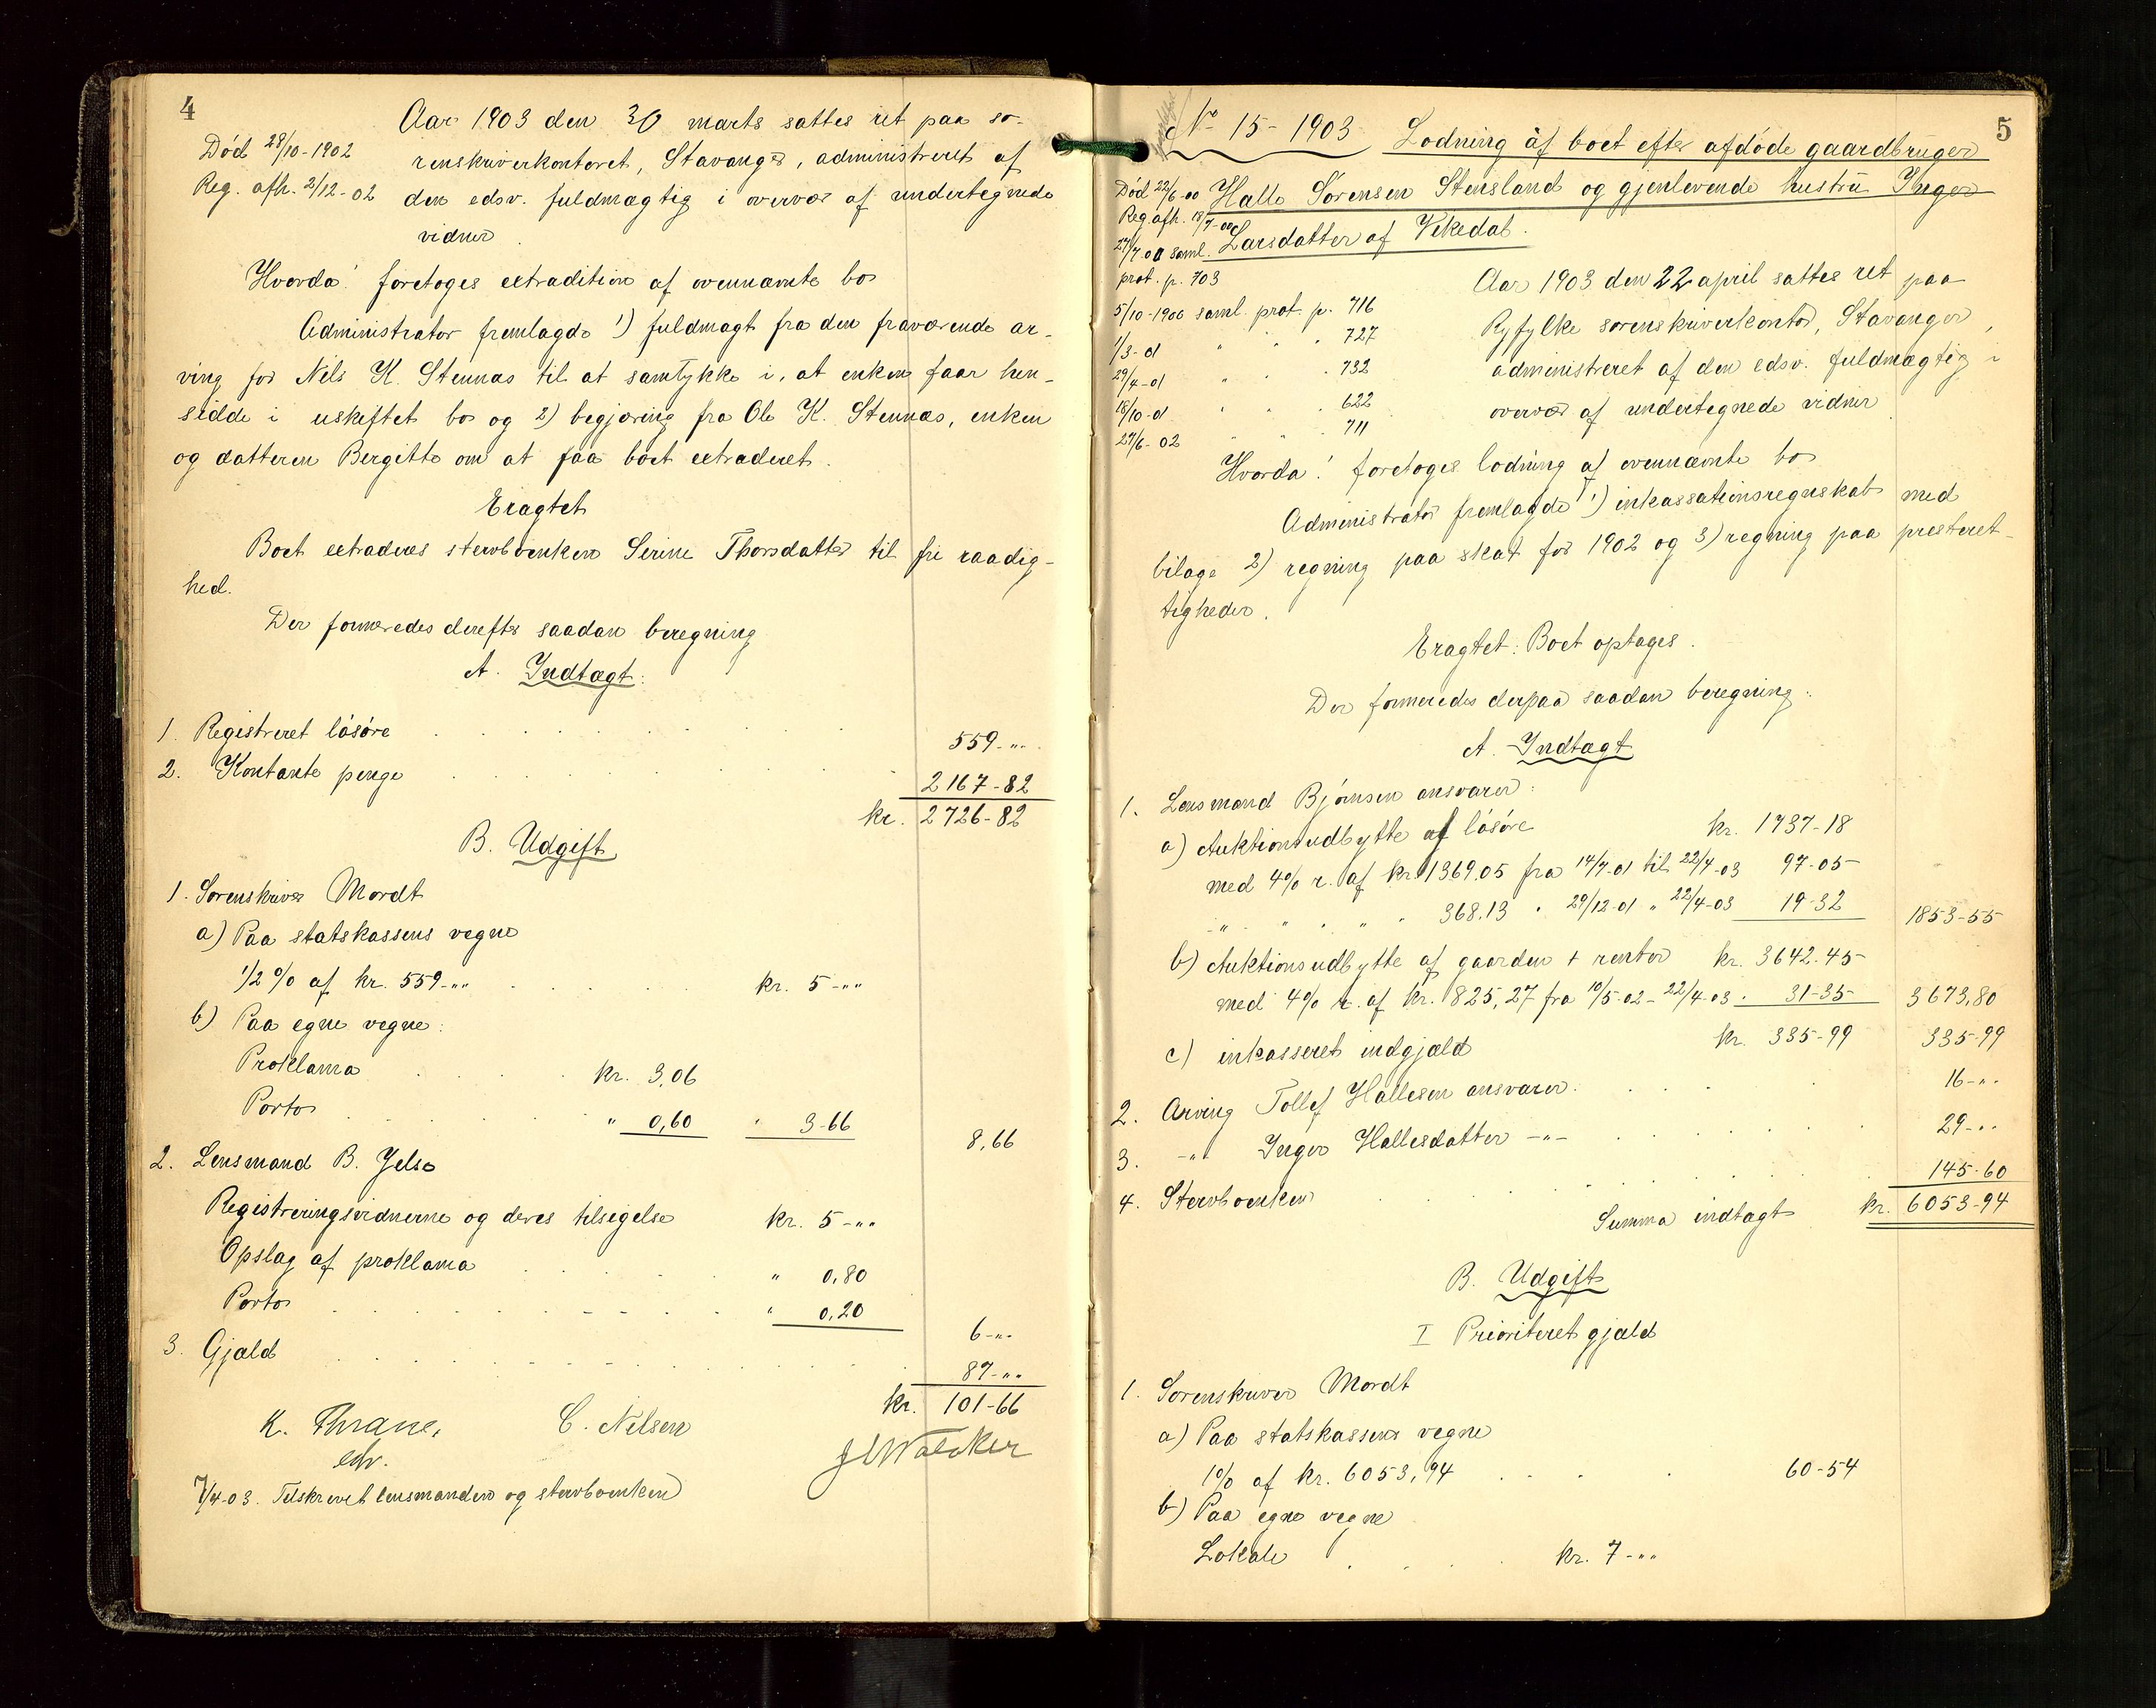 4
Aar 1903 den 30 marts sattes ret paa so-
Död 28/10-1902
renskriverkontoret, Stavanger, administreret af
Reg. afh. 2/12-02
den edsv. fuldmægtig i overvær af undertegnede
vidner.
Hvorda! foretoges extradition af ovennævnte bo
Administrator fremlagde 1) fuldmagt fra den fraværende ar-
ving for Nels K. Stennæs til at samtykke i, at enken faar hen-
sidde i uskiftet bo og 2) begjæring fra Ole K. Stennæs, enken
og datteren Bergitte om at faa boet extraderet.
Eragtet
Boet extraderes stervboenken Serine Thorsdatter til fri raadig-
hed.
Der formeredes derefter saadan beregning
A. Indtægt:
1. Registreret lösöre . . . 559-"-
2. Kontante penge . . . 2167-82
kr. 2726-82
B. Udgift
1. Sorenskriver Mordt
a) Paa statskassens vegne
1/2 % af kr. 559-"" . . . kr. 5-""
b) Paa egne vegne:
Proklama . . . kr. 3,06
Porto . . . " 0,60 " 3-66 8,66
2. Lensmand B. Jelse
Registreringsvidnerne og deres tilsigelse kr. 5-""
Opslag af proklama . . . " 0,80
Porto . . . " 0,20 6-"-
3. Gjæld . . . 87-""
kr. 101-66
K. Thrane, C. Nilsen
edv.
7/4-03. Tilskrevet lensmanden og stervboenken
5
No 15-1903 Lodning af boet efter afdöde gaardbruger
Död 22/6-00 Halle Sörensen Stensland og gjenlevende hustru Inger
Reg. afh. 18/7-00
27/7-00 saml. Larsdatter af Vikedal.
prot. p. 703
Aar 1903 den 22 april sattes ret paa
5/10-1900 saml. prot. p. 716
Ryfylke sorenskriverkontor, Stavanger,
1/3-01 " " . 727
administreret af den edsv. fuldmægtig i
29/4-01 " . . 732
overvær af undertegnede vidner
18/10-01 " " . 622
27/6-02 " " . 711
Hvorda! foretoges lodning af ovennævnte bo
Administrator fremlagde 1) inkassationsregnskab med
bilage 2) regning paa skat for 1902 og 3) regning paa presteret-
tigheder.
Eragtet: Boet optages.
Der formeredes derpaa saadan beregning:
A. Indtægt
1. Lensmand Björnsen ansvarer:
a) Auktionsudbytte af lösöre kr. 1737-18
med 4% r. af kr. 1369.05 fra 14/7-01 til 22/4-03 97-05
" " " " " 368.13 " 29/12-01 " 22/4-03 19-32 1853-55
b) Auktionsudbytte af gaarden + renter kr. 3642.45
med 4% r. af kr. 825,27 fra 10/5-02-22/4-03. 31-35 3673,80
c) inkasseret indgjæld kr. 335-99 335-99
2. Arving Tollef Hallesen ansvarer . . . 16-"-
3. -"- Inger Hallesdatter -"- . . . 29-"-
4. Stervboenken . . . 145-60
Summa indtægt kr. 6053-94
B. Udgift
I Prioriteret gjæld
1. Sorenskriver Mordt
a) Paa statskassens vegne
1% af kr. 6053,94 . . . 60-54
b) Paa egne vegne
Lokale . . . kr. 7-""